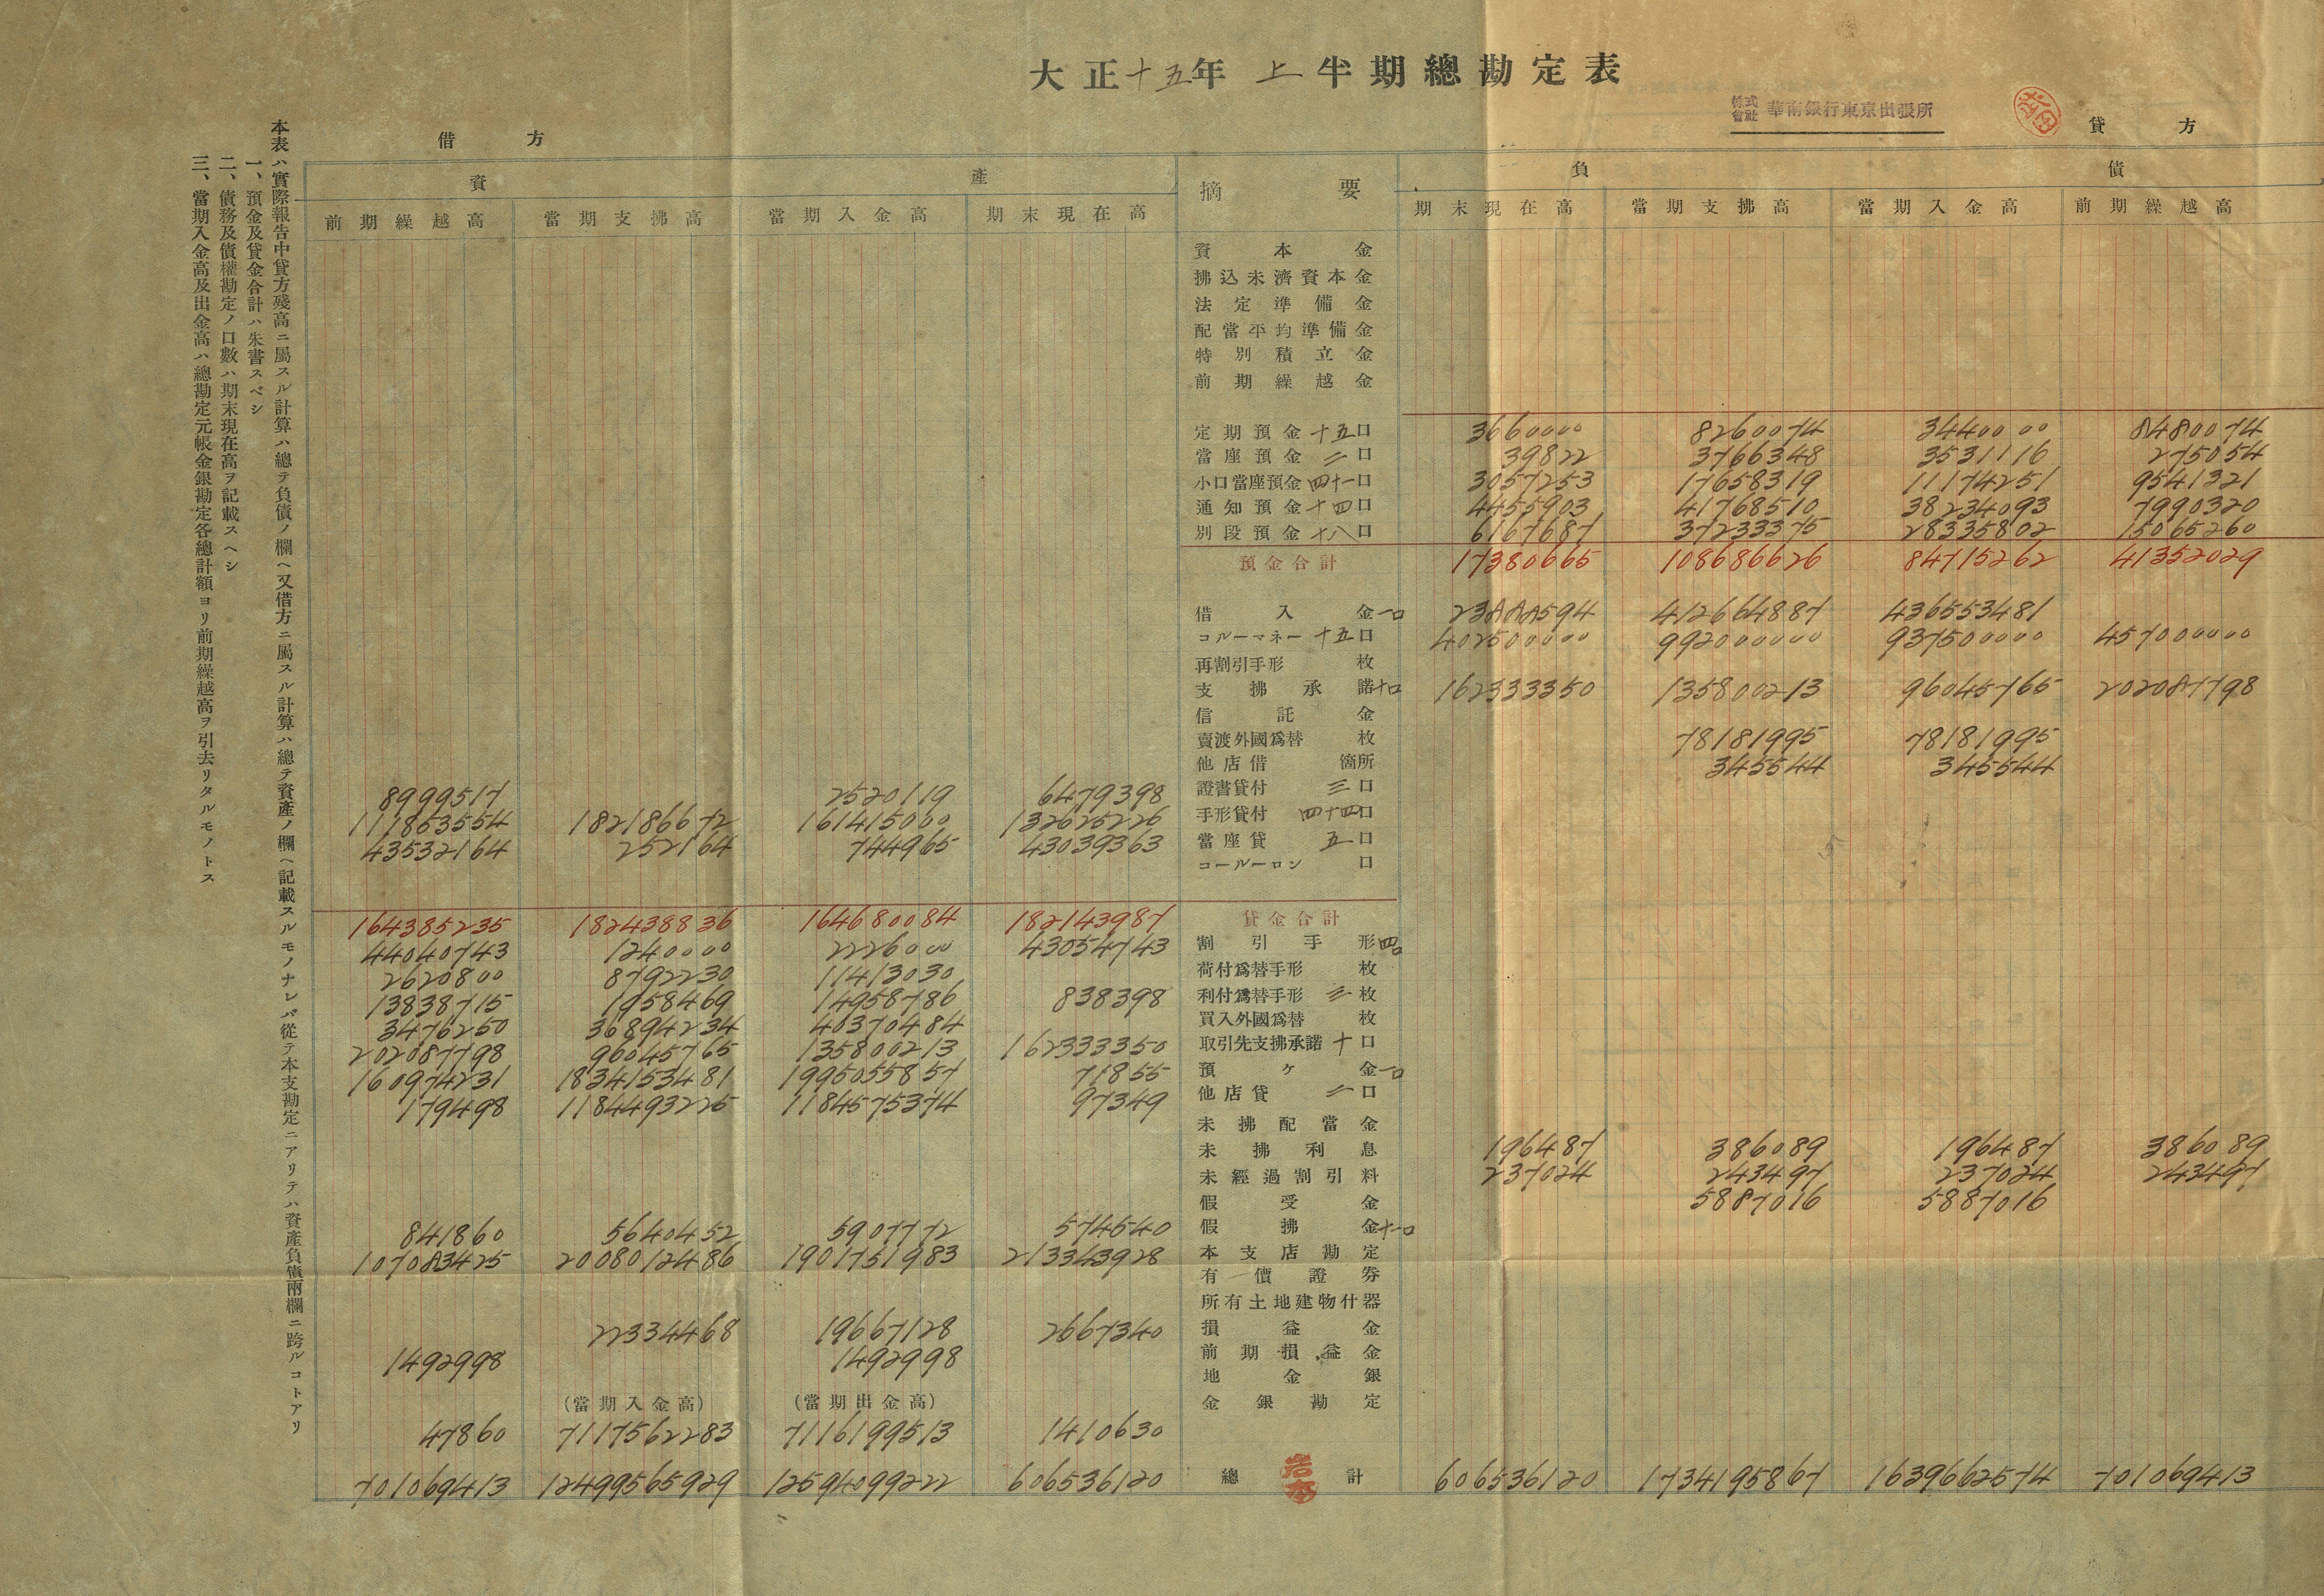 大正十五年上半期總勘定表
株式會社 華南銀行東京出張所
借方 貸方
資產 摘要 負債
前期繰越高 當期支拂高 當期入金高 期末現在高 期末現在高 當期支拂高 當期入金高 前期繰越高
資本金
拂込未濟資本金
法定準備金
配當平均準備金
特別積立金
前期繰越金
定期預金 十五口 3660000 8260074 3440000 8480074
當座預金 二口 39822 3766348 3531116 275054
小口當座預金 四十一口 3057253 17658319 11174251 9541321
通知預金 十四口 4455903 41768510 38234093 7990320
別段預金 十八口 6167687 37233375 28335802 15065260
預金合計 17380665 108686626 84715262 41352029
借入金 一口 23888594 412664887 436553481
コルーマネー 十五口 402500000 992000000 937500000 457000000
再割引手形 枚
支拂承諾 十口 162333350 135800213 96045765 202087798
信託金
賣渡外國爲替 枚 78181995 78181995
他店借 箇所 345544 345544
8999517 2520119 6479398 證書貸付 三口
111853554 182186672 161415000 132625226 手形貸付 四十四口
43532164 252164 744965 43039363 當座貸 五口
コールーロン 口
164385235 182438836 164680084 182143987 貸金合計
44040743 1240000 2226000 43054743 割引手形 四口
2620800 8792230 11413030 荷付爲替手形 枚
13838715 1958469 14958786 838398 利付爲替手形 三枚
3476250 36894234 40370484 買入外國爲替 枚
202087798 96045765 135800213 162333350 取引先支拂承諾 十口
160974231 1834153481 1995055857 71855 預ケ金 一口
179498 1184493225 1184575374 97349 他店貸 二口
未拂配當金
未拂利息 196487 386089 196487 386089
未經過割引料 237024 243497 237024 243497
假受金 5887016 5887016
841860 5640452 5907772 574540 假拂金 十一口
107083425 2008012486 1901751983 213343928 本支店勘定
有價證券
所有土地建物什器
22334468 19667128 2667340 損益金
1492998 1492998 前期損益金
地金銀
(當期入金高) (當期出金高) 金銀勘定
47860 7117562283 7116199513 1410630
701069413 12499565929 12594099222 606536120 總計 606536120 1734195867 1639662574 701069413
本表ハ實際報告中貸方殘高ニ屬スル計算ハ總テ負債ノ欄ヘ又借方ニ屬スル計算ハ總テ資產ノ欄ヘ記載スルモノナレバ從テ本支勘定ニアリテハ資產負債兩欄ニ跨ルコトアリ
一、預金及貸金合計ハ朱書スベシ
二、債務及債權勘定ノ口數ハ期末現在高ヲ記載スヘシ
三、當期入金高及出金高ハ總勘定元帳金銀勘定各總計額ヨリ前期繰越高ヲ引去リタルモノトス